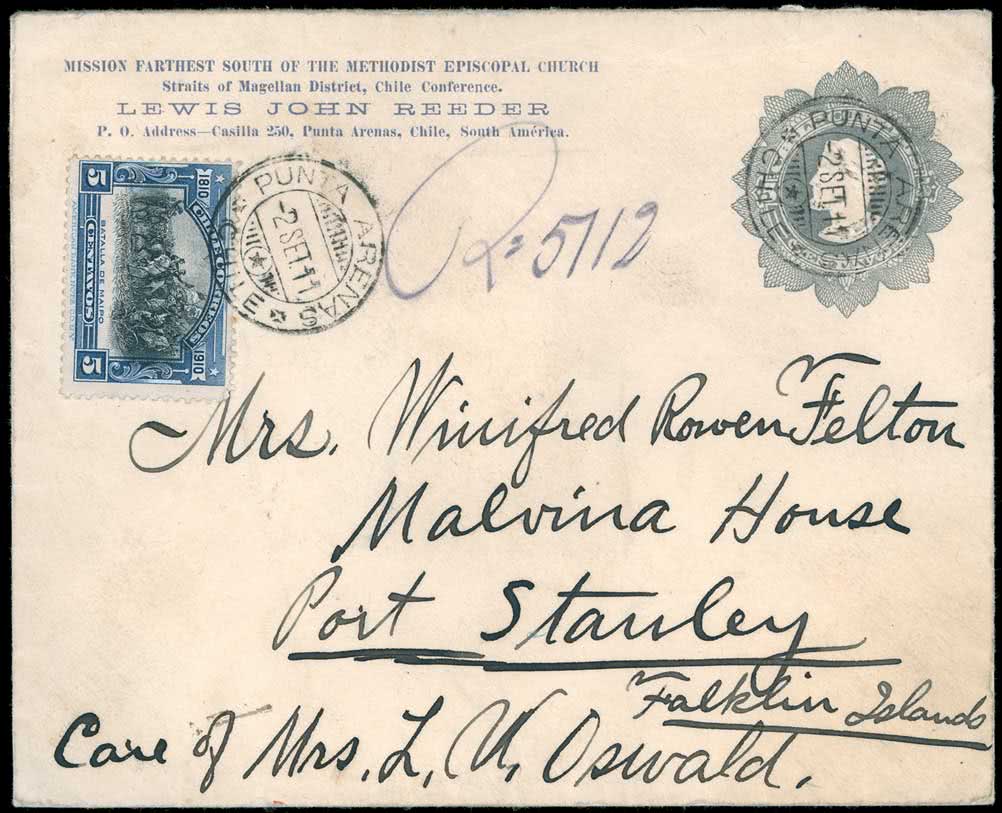 MISSION FARTHEST SOUTH OF THE METHODIST EPISCOPAL CHURCH
Straits of Magellan District, Chile Conference.
LEWIS JOHN REEDER
P. O. Address—Casilla 250, Punta Arenas, Chile, South América.
1810
1910
CHILE CORREOS
BATALLA DE MAIPO
5 CENTAVOS 5
PUNTA ARENAS
-2 SET. 11
CHILE
PUNTA ARENAS
-2 SET. 11
CHILE
R= 5712
Mrs. Winifred Rowen Felton
Malvina House
Port Stanley
Falklin Islands
Care of Mrs. L. U. Oswald.